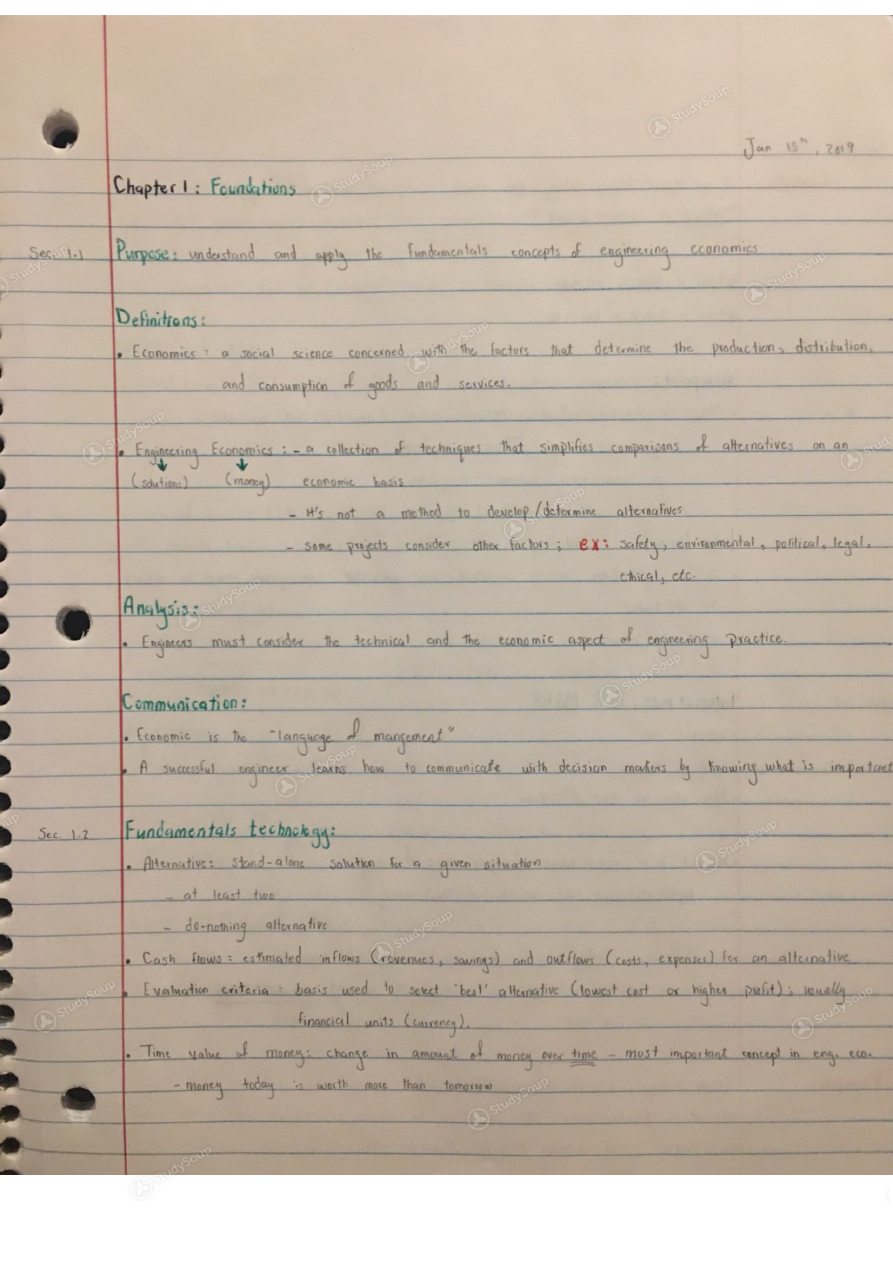 Jan 15th, 2019
Chapter 1: Foundations
Sec. 1.1 Purpose: understand and apply the fundamentals concepts of engineering economics
Definitions:
• Economics: a social science concerned with the factors that determine the production, distribution,
and consumption of goods and services.
• Engineering Economics: - a collection of techniques that simplifies comparisons of alternatives on an
(solutions) (money) economic basis
- It's not a method to develop/determine alternatives
- some projects consider other factors; ex: safety, environmental, political, legal,
ethical, etc.
Analysis:
• Engineers must consider the technical and the economic aspect of engineering practice.
Communication:
• Economic is the "language of mangement"
• A successful engineer learns how to communicate with decision makers by knowing what is important
Sec. 1.2 Fundamentals technology:
• Alternative: stand-alone solution for a given situation
- at least two
- do-nothing alternative
• Cash flows: estimated inflows (revenues, savings) and outflows (costs, expenses) for an alternative
• Evaluation criteria: basis used to select 'best' alternative (lowest cost or higher profit); usually
financial units (currency).
• Time value of money: change in amount of money over time - most important concept in eng. eco.
- money today is worth more than tomorrow
StudySoup